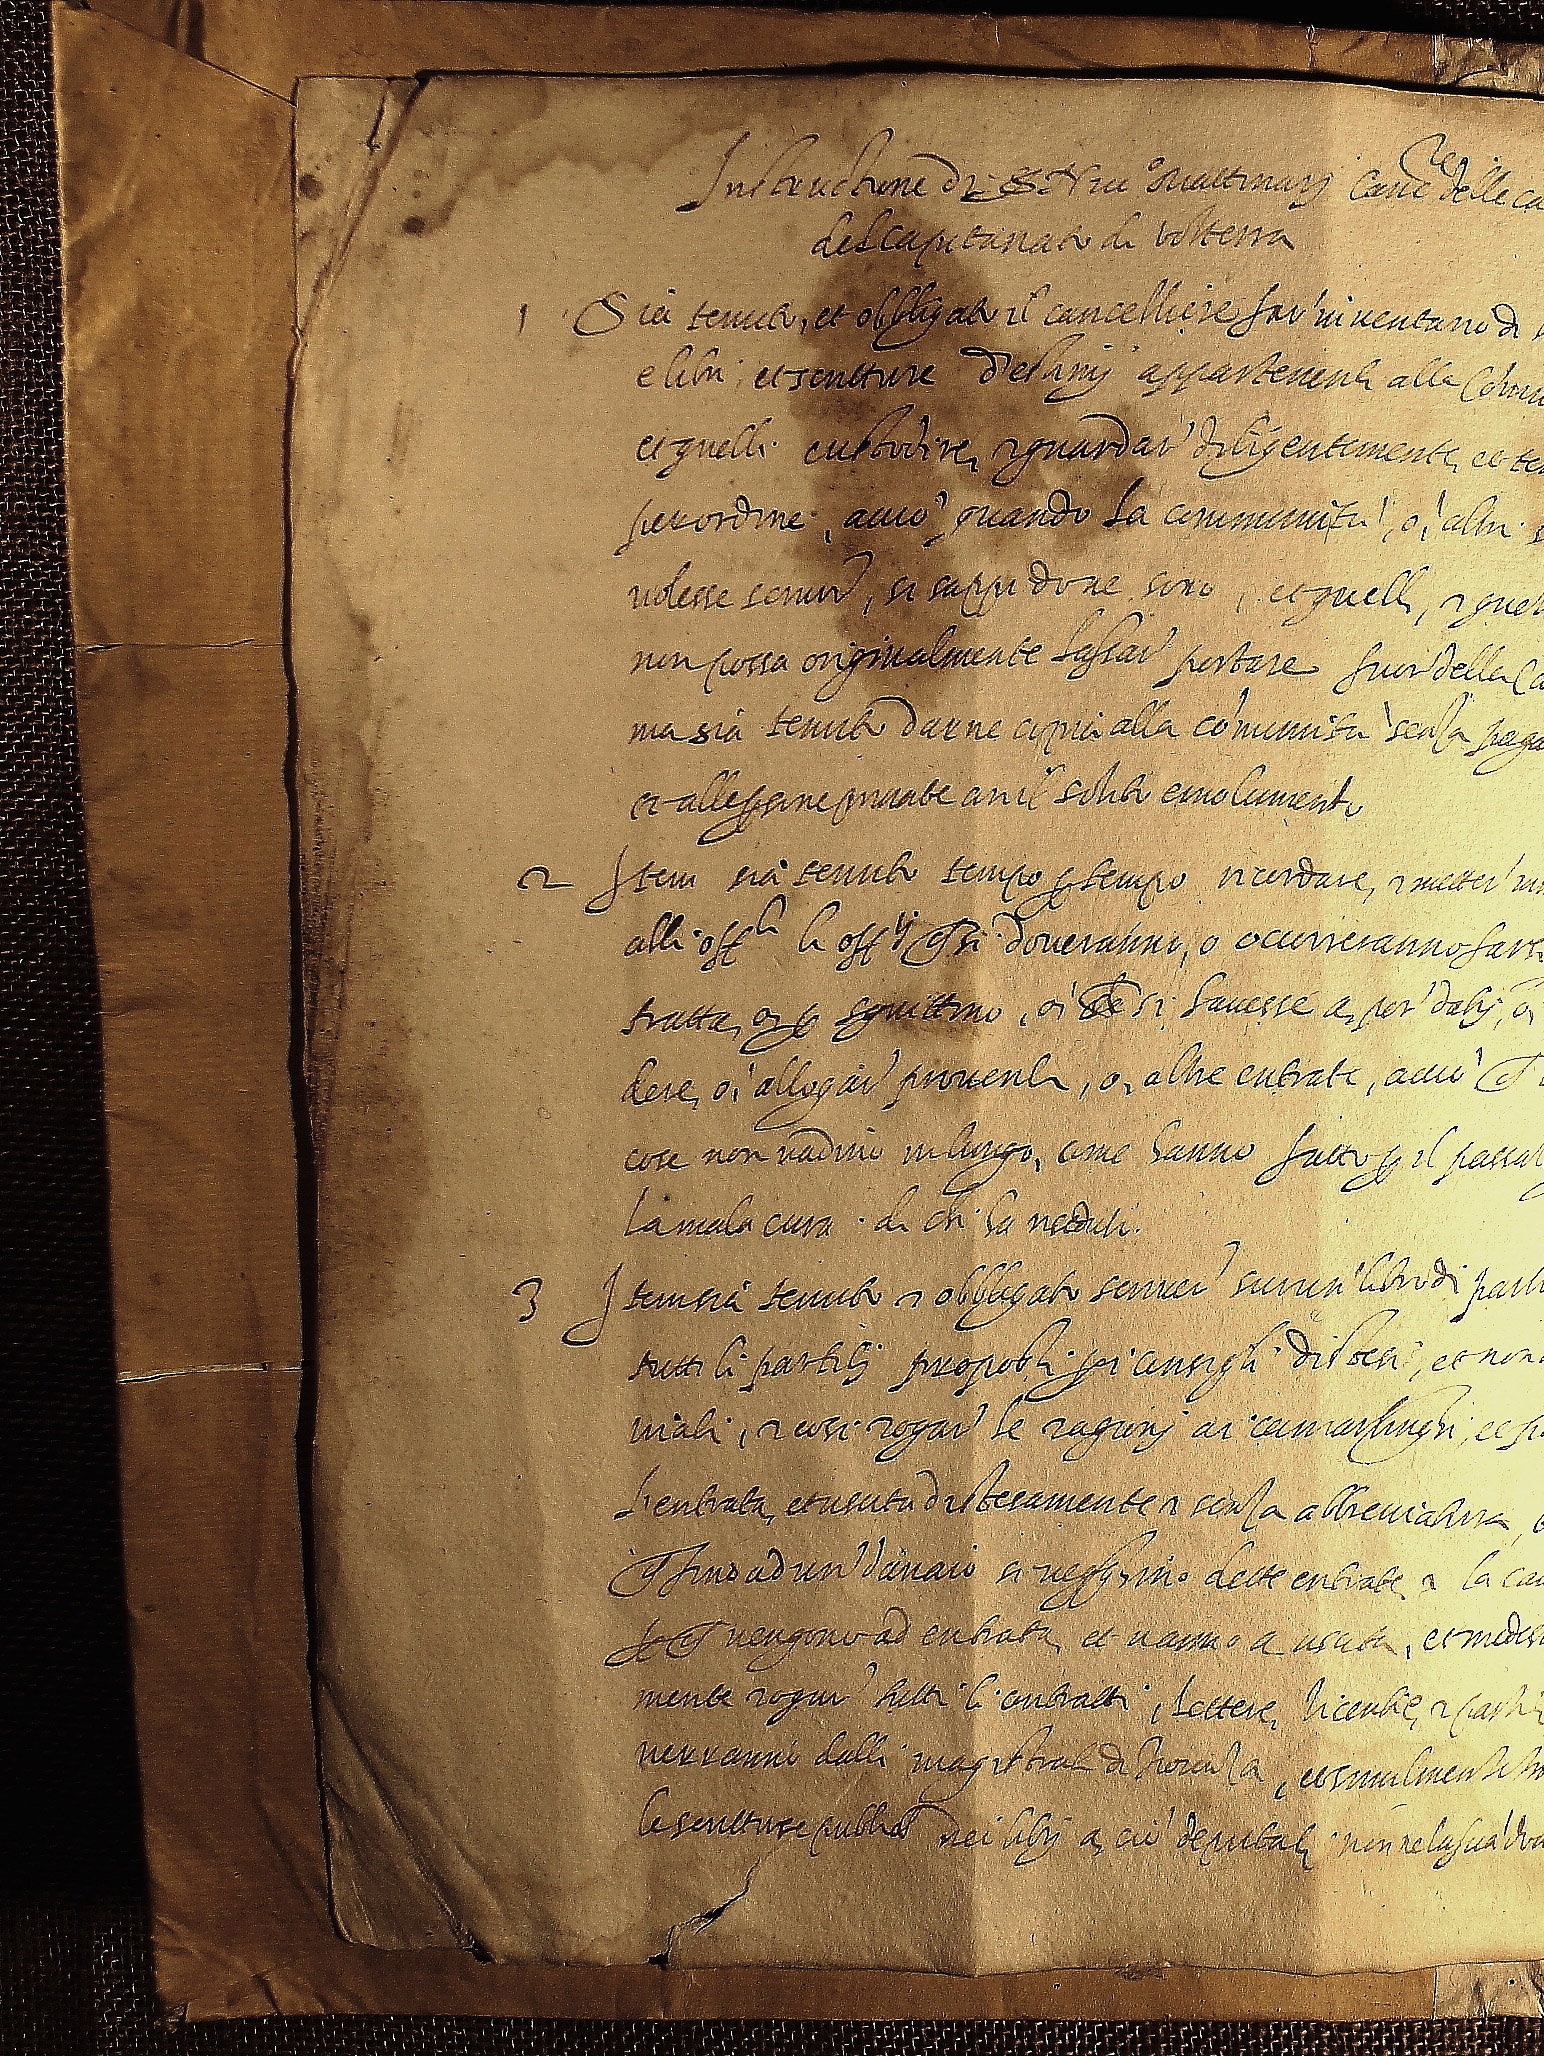 Instructione di Canc.re delle ca
del capitanato di volterra
1 Sia tenuto, et obbligato il cancelliere far' inventario di
e libri et scritture appartenenti alla Comu
et quelli custodire, et guardar' diligentemente, et te
per ordine, acciò quando la communità, o, altri s
volesse servir', si sappi dove sono, et quelli, et quel
non possa originalmente lassar' portare fuor' della Ca
ma sia tenuto darne copia alla comunità senza paga
et alle persone private con il solito emolumento
2 Item sia tenuto tempo p tempo ricordare, et metter' in
alli off.li li off.ij che si doveranno, o occurreranno fare
tratta, o, p squittino, o, che si havesse a por' datij, o,
dere, o, allogar' proventi, o, altre entrate, acciò che
cose non vadino in lungo, come hanno fatto p il passat
la mala cura di chi la
3 Item sia tenuto et obbligato scriver' libro di parti
tutti li partiti proposti p i consigli distesi, et non
niali, et così rogar' le ragioni ai camarlinghi, et p
l'entrata, et uscita distesamente et senza abbreviatura,
che fino ad un' danaio si vegghino dette entrate, et la cau
p che vengono ad entrata, et vanno a uscita, et medesi
mente rogar' tutti li contratti, lettere, licentie, et parti
verranno dalli magistrati di Fiorenza, et similmente
le scritture nei libri a, ciò deputati non ne lassa